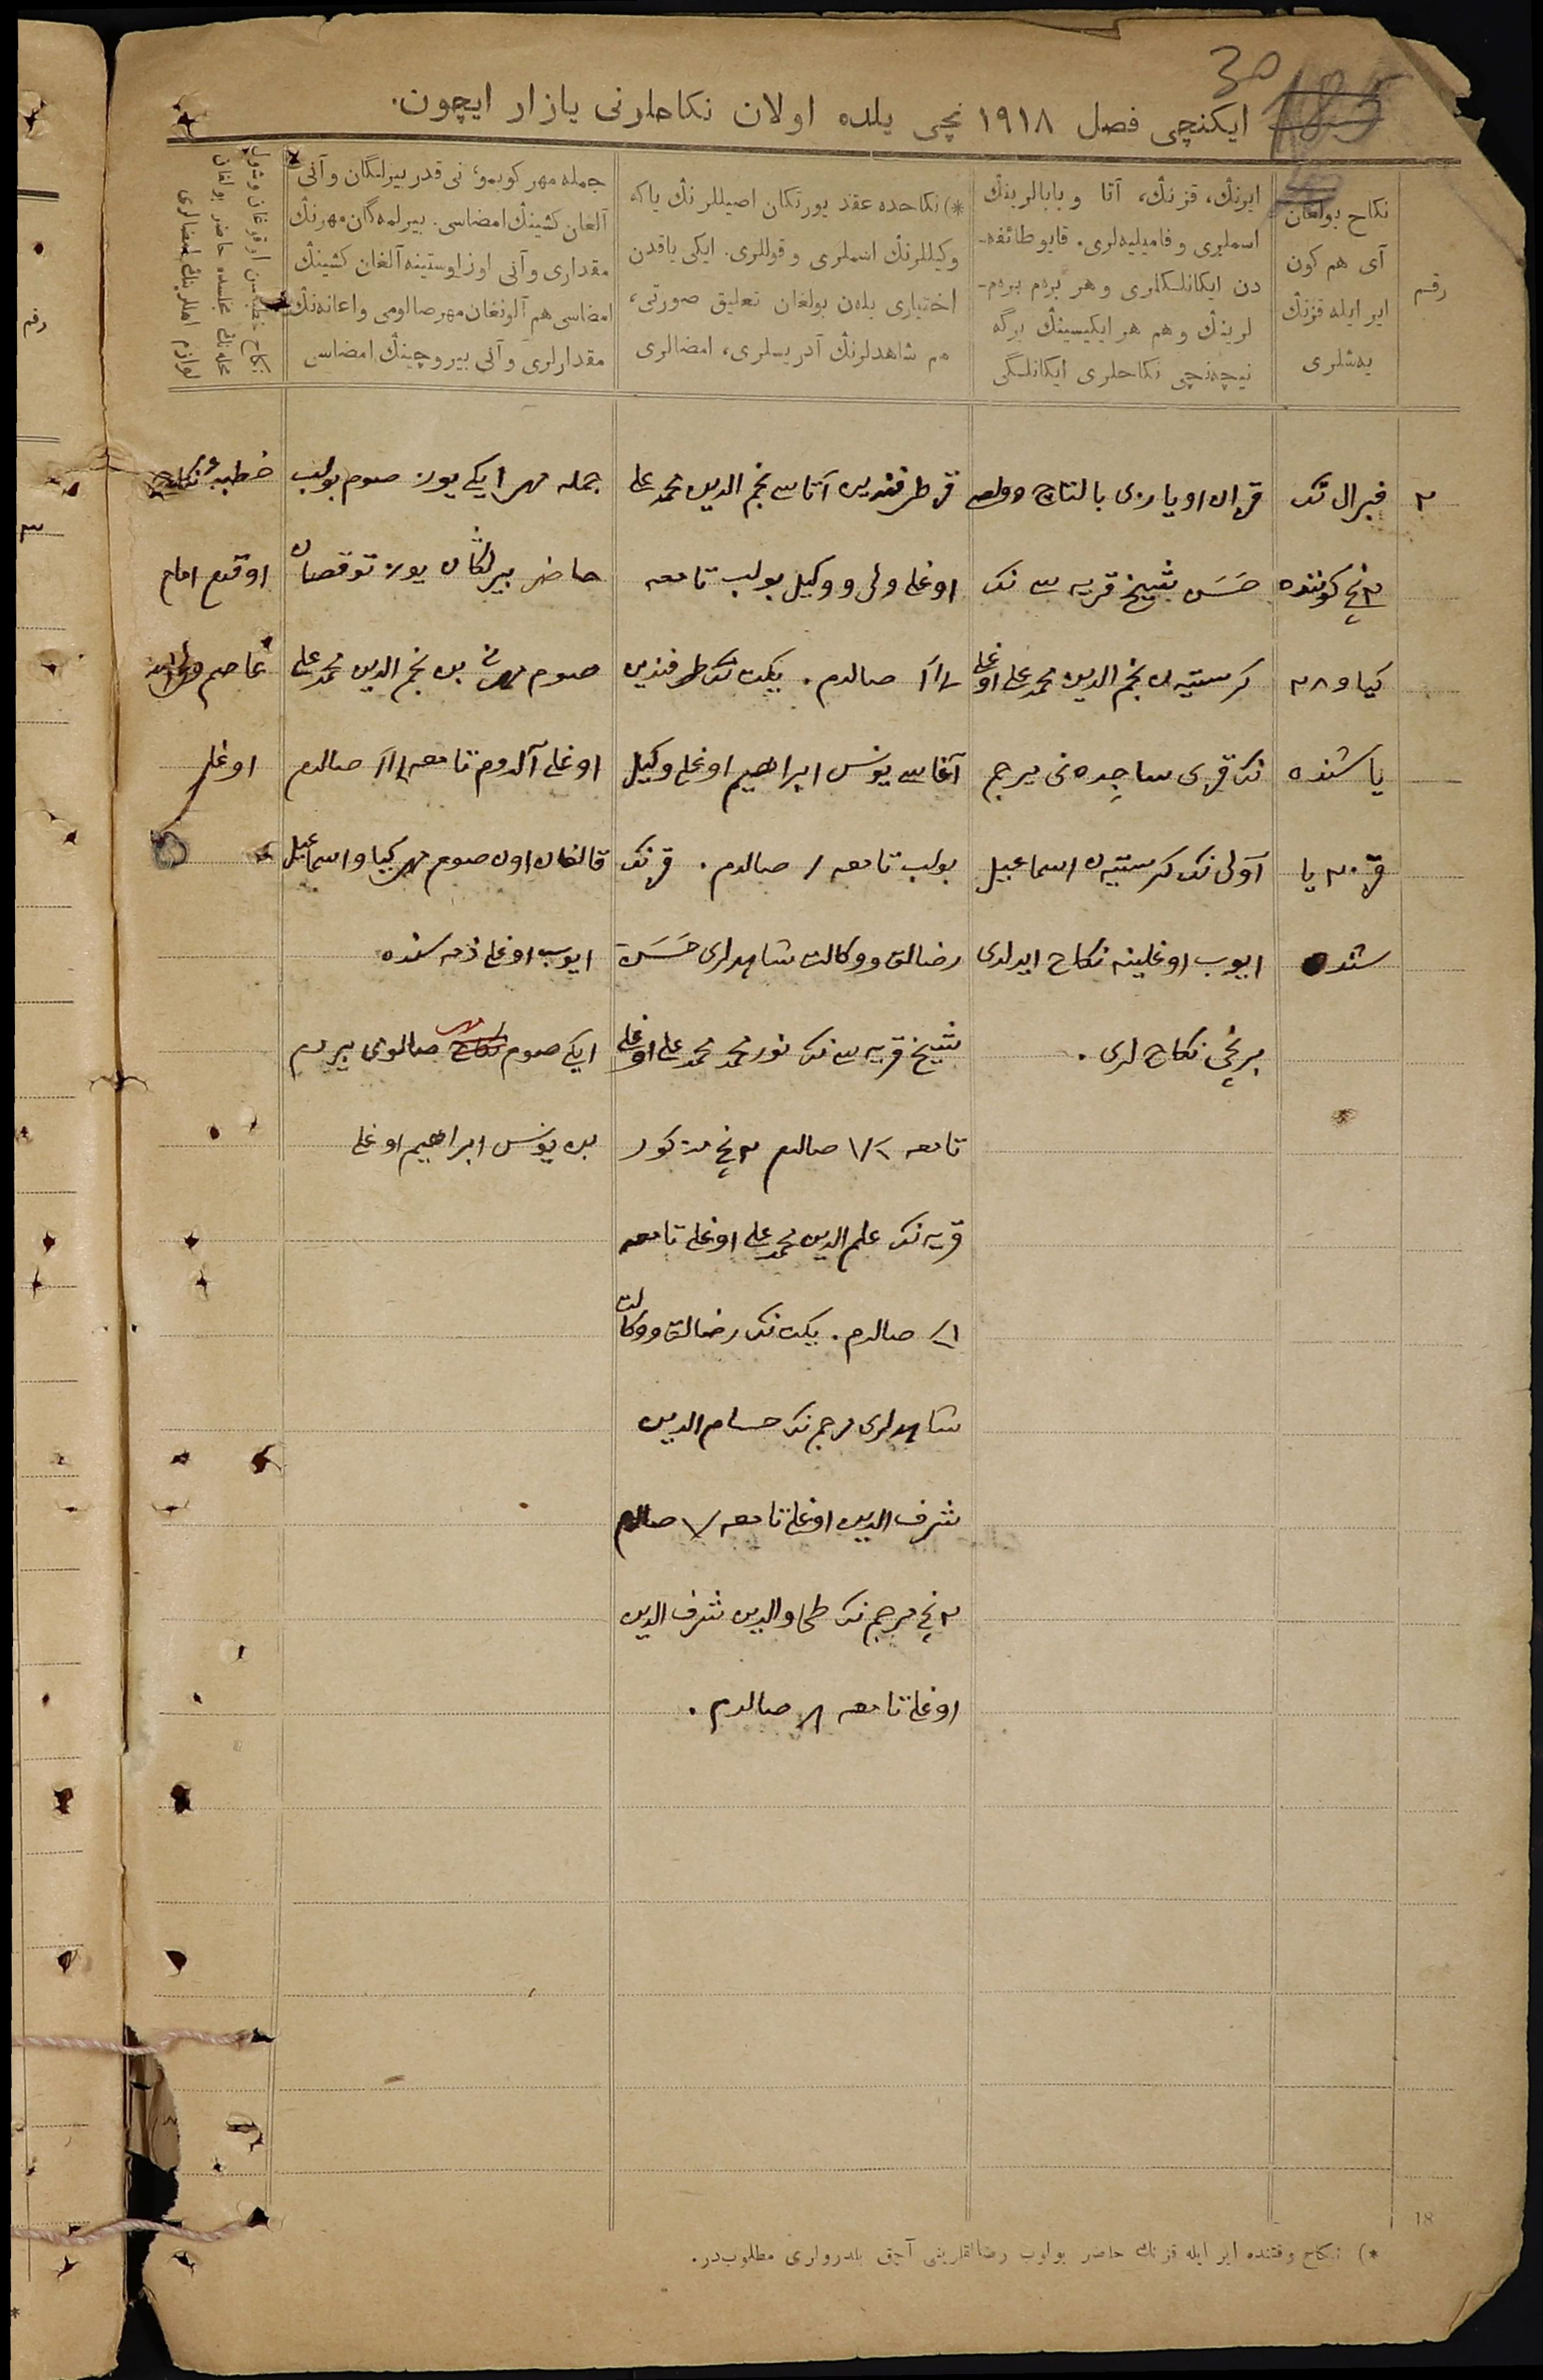 30
185
ایکنچی فصل ۱۹۱۸ نچی یلده اولان نکاحلرنی یازار ایچون.
رقم
نکاح بولغان
آی هم کون
ایر ایله قزنڭ
یه‌شلری
ایرنڭ، قزنڭ، آتا و بابالرینڭ
اسملری و فامیلیه‌لری. قایو طائفه‌ـ
دن ایکانلکلری و هر برەم برەم‌ـ
لرینڭ و هم هر ایکیسینڭ برگه
نیچه‌نچی نکاحلری ایکانلگی
*) نکاحده عقد یورتکان اصیللرنڭ یاکه
وکیللرنڭ اسملری و قوللری. ایکی یاقدن
اختیاری بلەن بولغان تعلیق صورتی،
هم شاهدلرنڭ آدریسلری، امضالری
جمله مهر کوبمو، نی قدر بیرلگان و آنی
آلغان کشینڭ امضاسی. بیرلمه‌گان مهرنڭ
مقداری و آنی اوز اوستینه آلغان کشینڭ
امضاسی هم آلونغان مهر صالومی و اعانه‌نڭ
مقدارلری و آنی بیروچینڭ امضاسی
نکاح خطبه‌سن اوقوغان و شول
مجلسده حاضر بولغان
لوازم اهللرینڭ امضالری
۲
فبرال نک
۲ نچی کوننده
کیاو ۲۸
یاشنده
قز ۲۰ یا
شنده
قزان اویازی بالتاچ وولصے
حَسَن شیخ قریه سی نک
کرستیه‌ن نجم الدین محمد علی اوغلی
نک قزی ساجِده نی مرجم
آولی نک کرستیه‌ن اسماعیل
ایوب اوغلینه نکاح ایدلدی
برنچی نکاح لری.
قز طرفندین آتاسی نجم الدین محمد علی
اوغلی ولی و وکیل بولب تامعه
صالدم. یکت نک طرفندین
آغاسی یونس ابراهیم اوغلی وکیل
بولب تامعه / صالدم. قز نک
رضالق و وکالت شاهدلری حَسَن
شیخ قریه سی نک نور محمد محمد علی اوغلی
تامعه صالدم ۲ نچی مذکور
قریه نک علم الدین محمد علی اوغلی تامعه
صالدم. یکت نک رضالق و وکالت
شاهدلری مرجم نک حسام الدین
شرف الدین اوغلی تامعه صالدم
۲ نچی مرجم نک شرف الدین
اوغلی تامعه صالدم.
جمله مهر ایکی یوز صوم بولب
حاضر بیرلگان یوز توقصان
صوم مهرنی من نجم الدین محمد علی
اوغلی آلدوم تامعه صالدم
قالغان اون صوم مهر کیاو اسماعیل
ایوب اوغلی ذمه سنده
ایکی صوم مهر صالومی بیردم
من یونس ابراهیم اوغلی
خطبهٔ نکاح
اوقدم امام
عاصم
اوغلی
18
*) نکاح وقتنده ایر ایله قز نڭ حاضر بولوب رضالقلرینی آچق بلدرولری مطلوب‌در.
رقم
۳